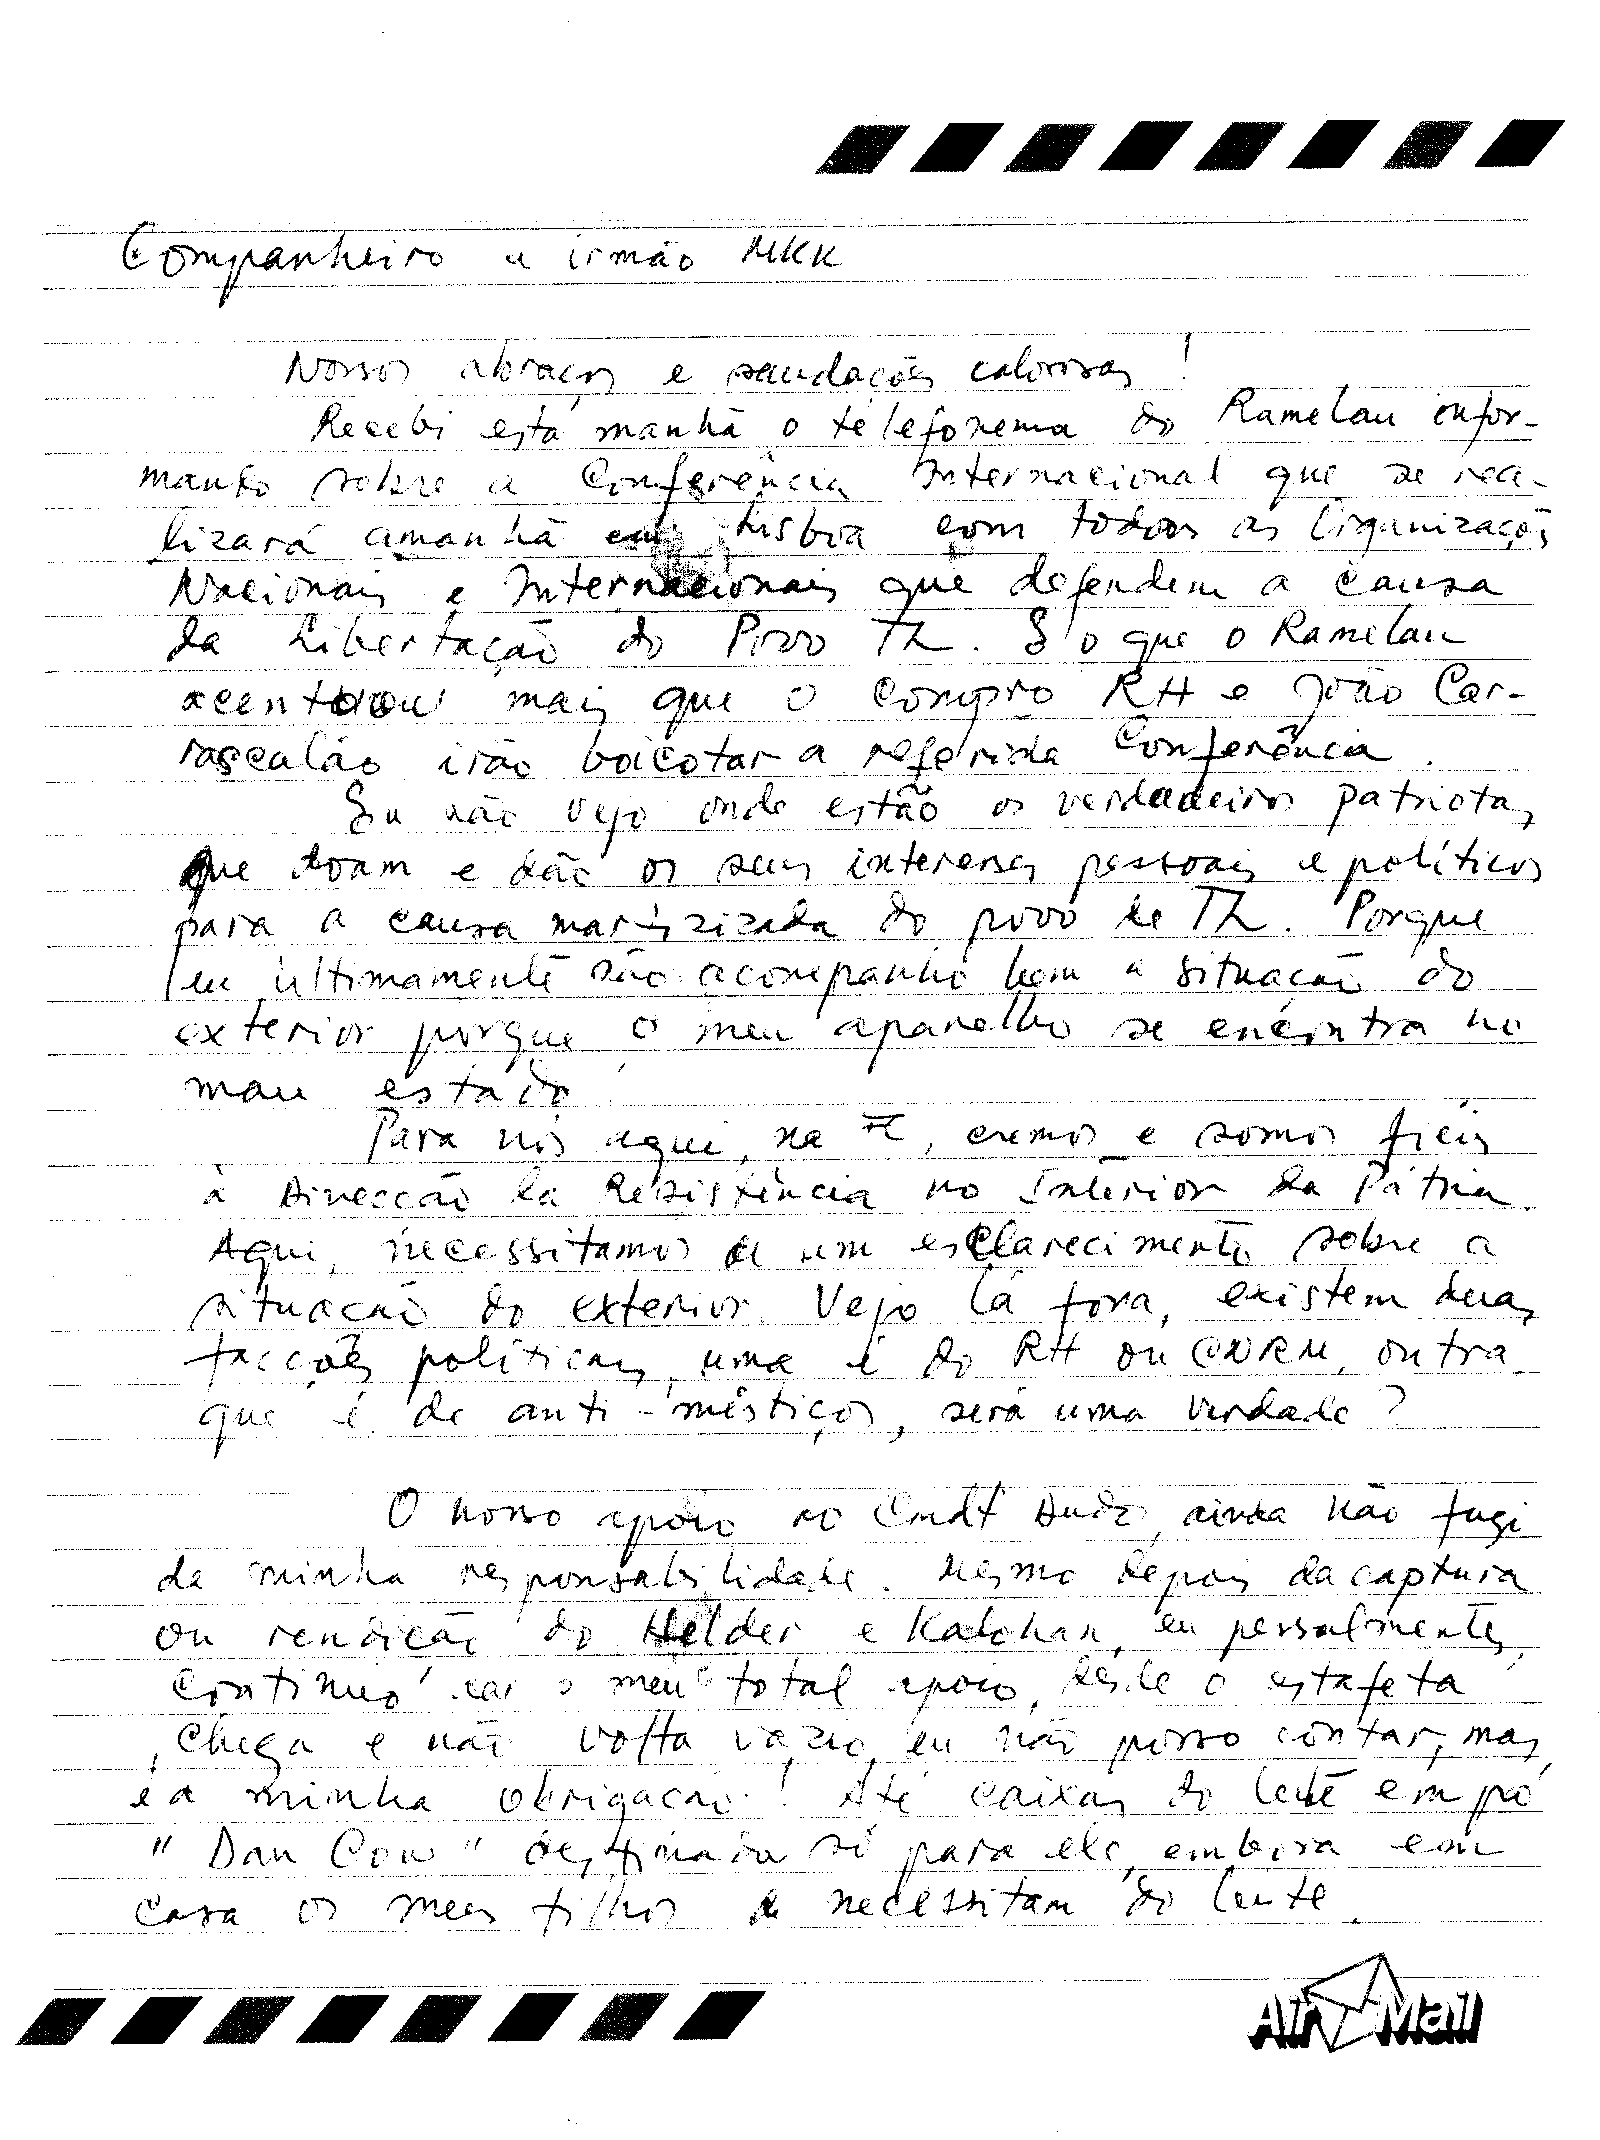 Companheiro e irmão MKK
Nossos abraços e saudações calorosas !
Recebi esta manhã o telefonema do Ramelau infor-
mando sobre a Conferência Internacional que se rea-
lizará amanhã em Lisboa com todas as Organizações
Nacionais e Internacionais que defendem a causa
da Libertação do Povo TL. Só que o Ramelau
acentuou mais que o compro RH e João Car-
rascalão irão boicotar a referida Conferência.
Eu não vejo onde estão os verdadeiros patriotas
que doam e dão os seus interesses pessoais e políticos
para a causa martirizada do povo de TL. Porque
eu ultimamente não acompanho bem a situação do
exterior porque o meu aparelho se encontra no
mau estado.
Para nós aqui, na FC, cremos e somos fiéis
à Direcção da Resistência no Interior da Pátria.
Aqui, necessitamos de um esclarecimento sobre a
situação do exterior. Vejo lá fora, existem duas
facções políticas, uma é do RH ou CNRM, outra
que é de anti-mestiços, será uma verdade ?
O nosso apoio ao Cmdt ainda não fugi
da minha responsabilidade. Mesmo depois da captura
ou rendição do Helder e Kalohan, eu pessoalmente,
continuo dar o meu total apoio, desde o estafeta
chega e não volta vazio, eu não posso contar, mas
é a minha obrigação ! Até caixas do leite em pó
" Dan Cow " destinada só para ele, embora em
casa os meus filhos necessitam do leite.
Air Mail